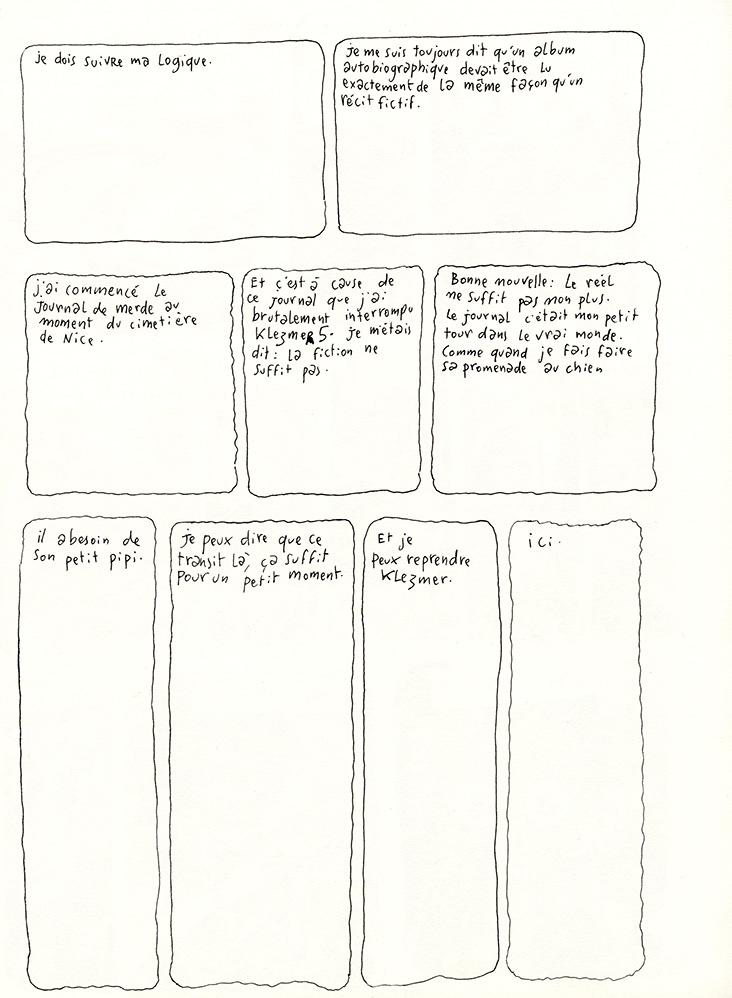 je dois suivre ma logique.
je me suis toujours dit qu'un album
autobiographique devait être lu
exactement de la même façon qu'un
récit fictif.
j'ai commencé le
journal de merde au
moment du cimetière
de Nice.
Et c'est à cause de
ce journal que j'ai
brutalement interrompu
Klezmer 5. je m'étais
dit : la fiction ne
suffit pas.
Bonne nouvelle : le réel
ne suffit pas non plus.
le journal c'était mon petit
tour dans le vrai monde.
Comme quand je fais faire
sa promenade au chien
il a besoin de
son petit pipi.
je peux dire que ce
transit là, ça suffit
pour un petit moment.
Et je
peux reprendre
Klezmer.
ici.